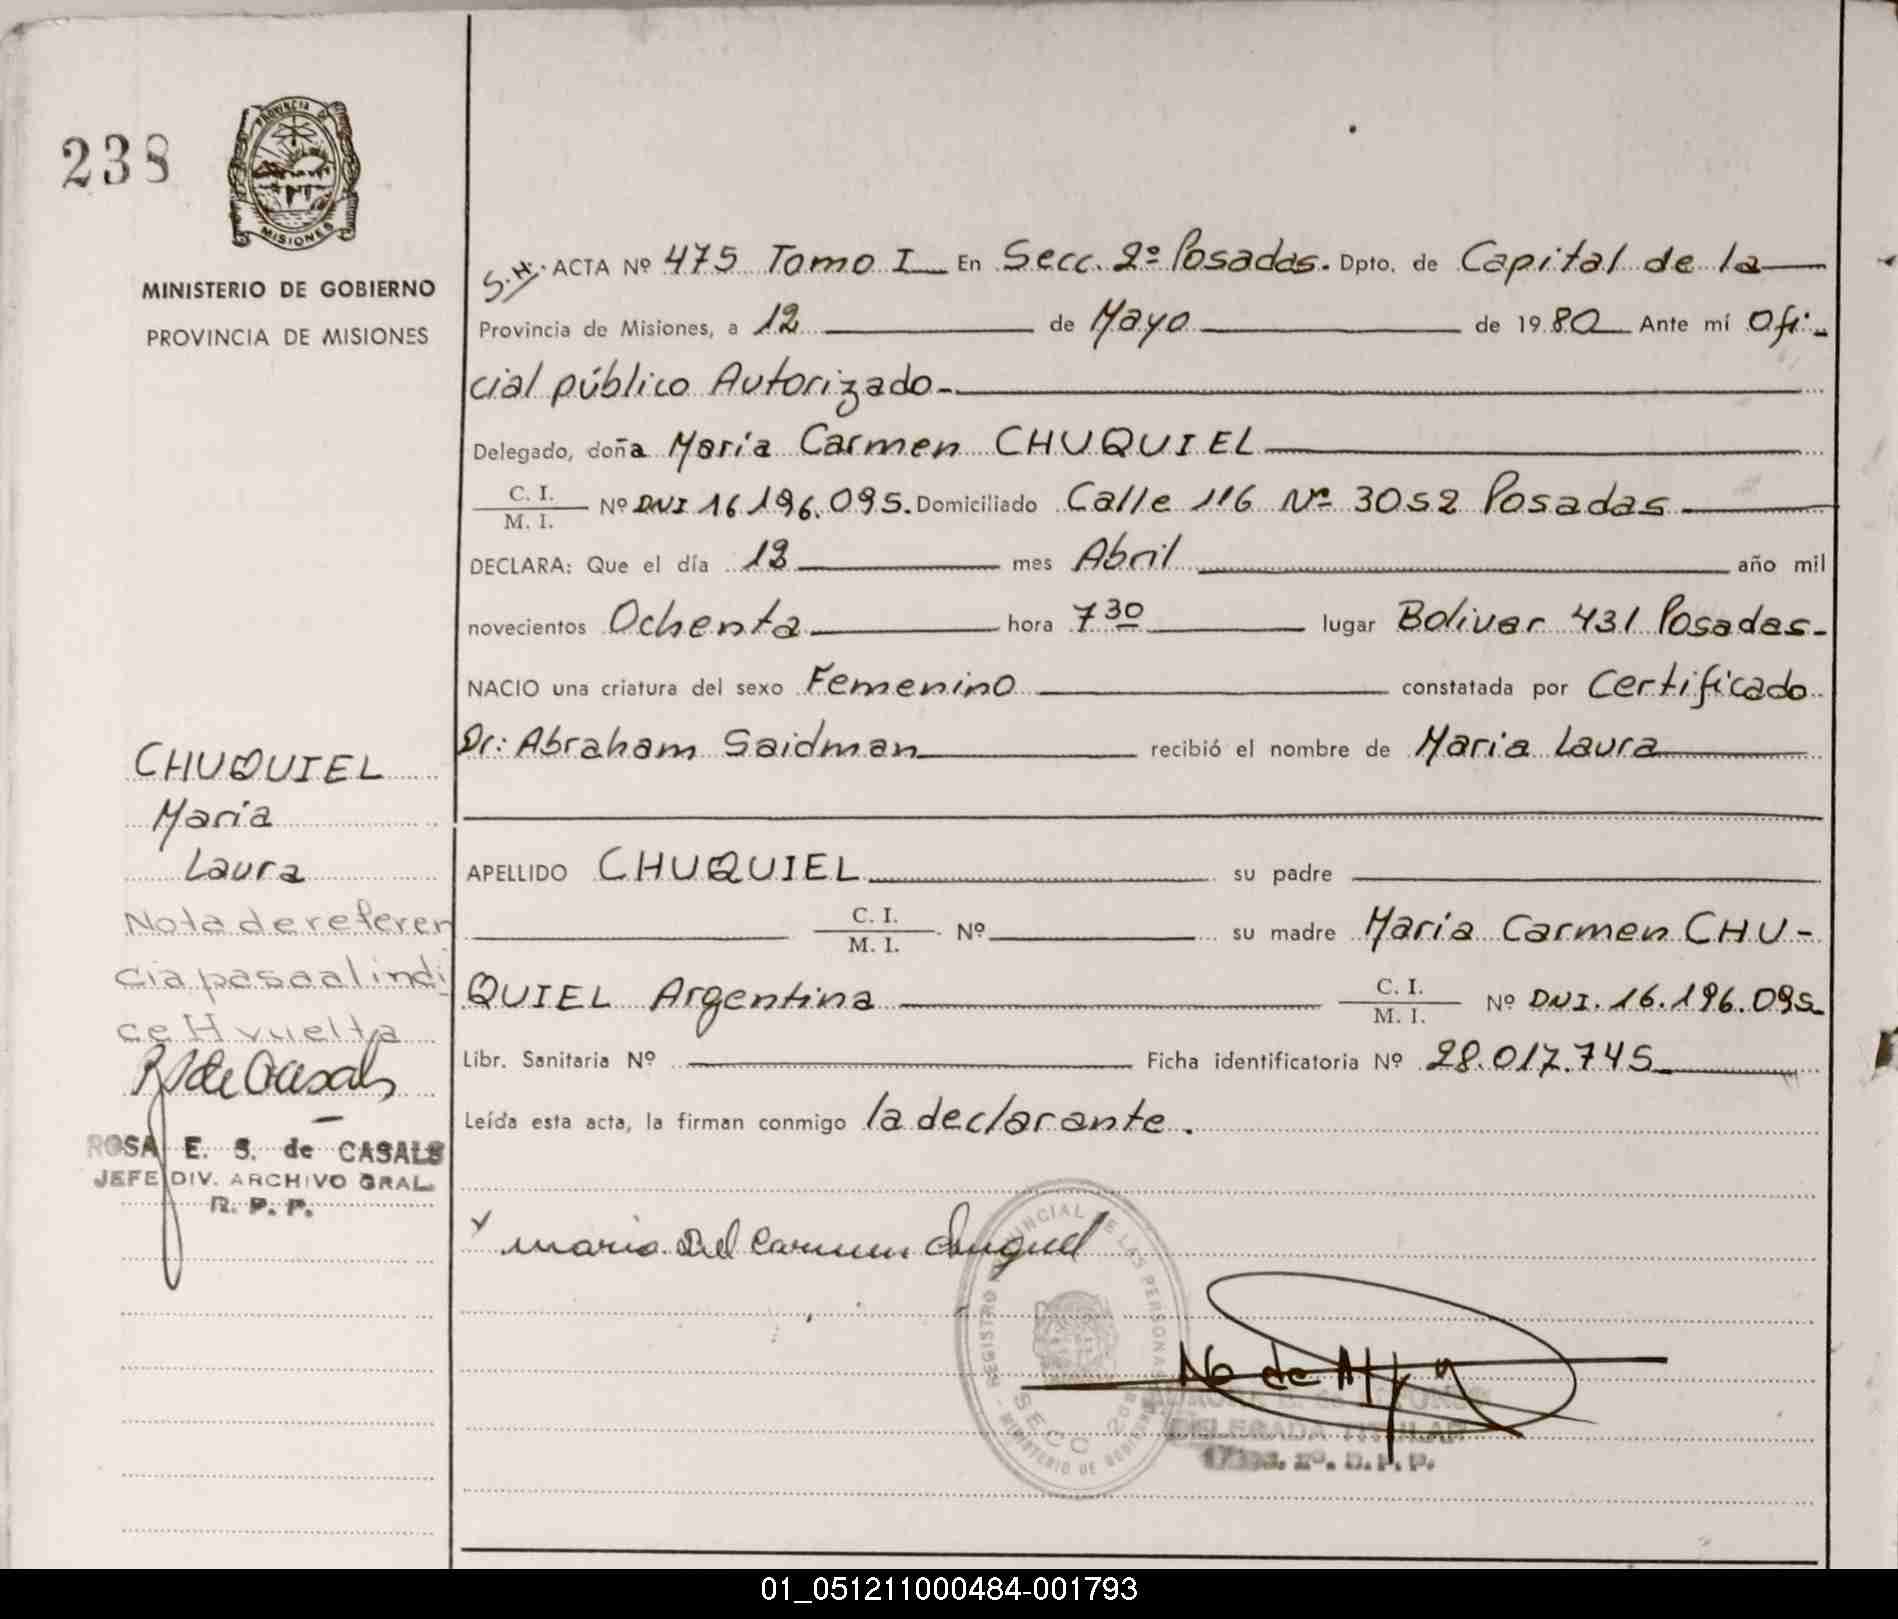 238
PROVINCIA DE
MISIONES
MINISTERIO DE GOBIERNO
PROVINCIA DE MISIONES
S.H. ACTA Nº 475 Tomo I En Secc. 2º Posadas. Dpto. de Capital de la
Provincia de Misiones, a 12 de Mayo de 1980 Ante mí Ofi-
cial público Autorizado-
Delegado, doña María Carmen CHUQUIEL
C. I.
M. I. Nº DNI 16.196.095. Domiciliado Calle 116 Nº 3052 Posadas
DECLARA: Que el día 13 mes Abril año mil
novecientos Ochenta hora 7 30 lugar Bolivar 431 Posadas-
NACIO una criatura del sexo Femenino constatada por Certificado
Dr: Abraham Saidman recibió el nombre de Maria Laura
CHUQUIEL
María
Laura
Nota de referen
cia pasa al indi
ce H vuelta
ROSA E. S. de CASALS
JEFE DIV. ARCHIVO GRAL.
R. P. P.
APELLIDO CHUQUIEL su padre
C. I.
M. I. Nº su madre María Carmen CHU-
QUIEL Argentina C. I.
M. I. Nº DNI. 16.196.095
Libr. Sanitaria Nº Ficha identificatoria Nº 28.017.745
Leída esta acta, la firman conmigo la declarante.
Maria Del Carmen
REGISTRO PROVINCIAL DE LAS PERSONAS
MINISTERIO DE GOBIERNO
SECC 2da
DELEGADA TITULAR
R.P.P.
01_051211000484-001793